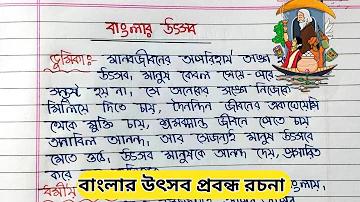 বাংলার উৎসব
ভূমিকাঃ মানবজীবনের অপরিহার্য অঙ্গ
উৎসব, মানুষ কেবল খেয়ে-পরে
সন্তুষ্ট হয় না, সে অনেকের সঙ্গে নিজেকে
মিলিয়ে দিতে চায়, দৈনন্দিন জীবনের একঘেয়েমি
থেকে মুক্তি চায়, শ্রমক্লান্ত জীবনে পেতে চায়
অনাবিল আনন্দ, আর সেজন্যই মানুষ উৎসবে
মেতে ওঠে, উৎসব মানুষকে আনন্দ দেয়, প্রসারিত
করে
বাংলার উৎসব প্রবন্ধ রচনা